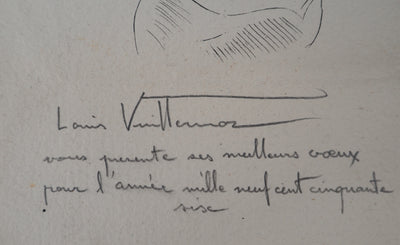 Louis Vuillermoz
vous présente ses meilleurs vœux
pour l'année mille neuf cent cinquante
sixe